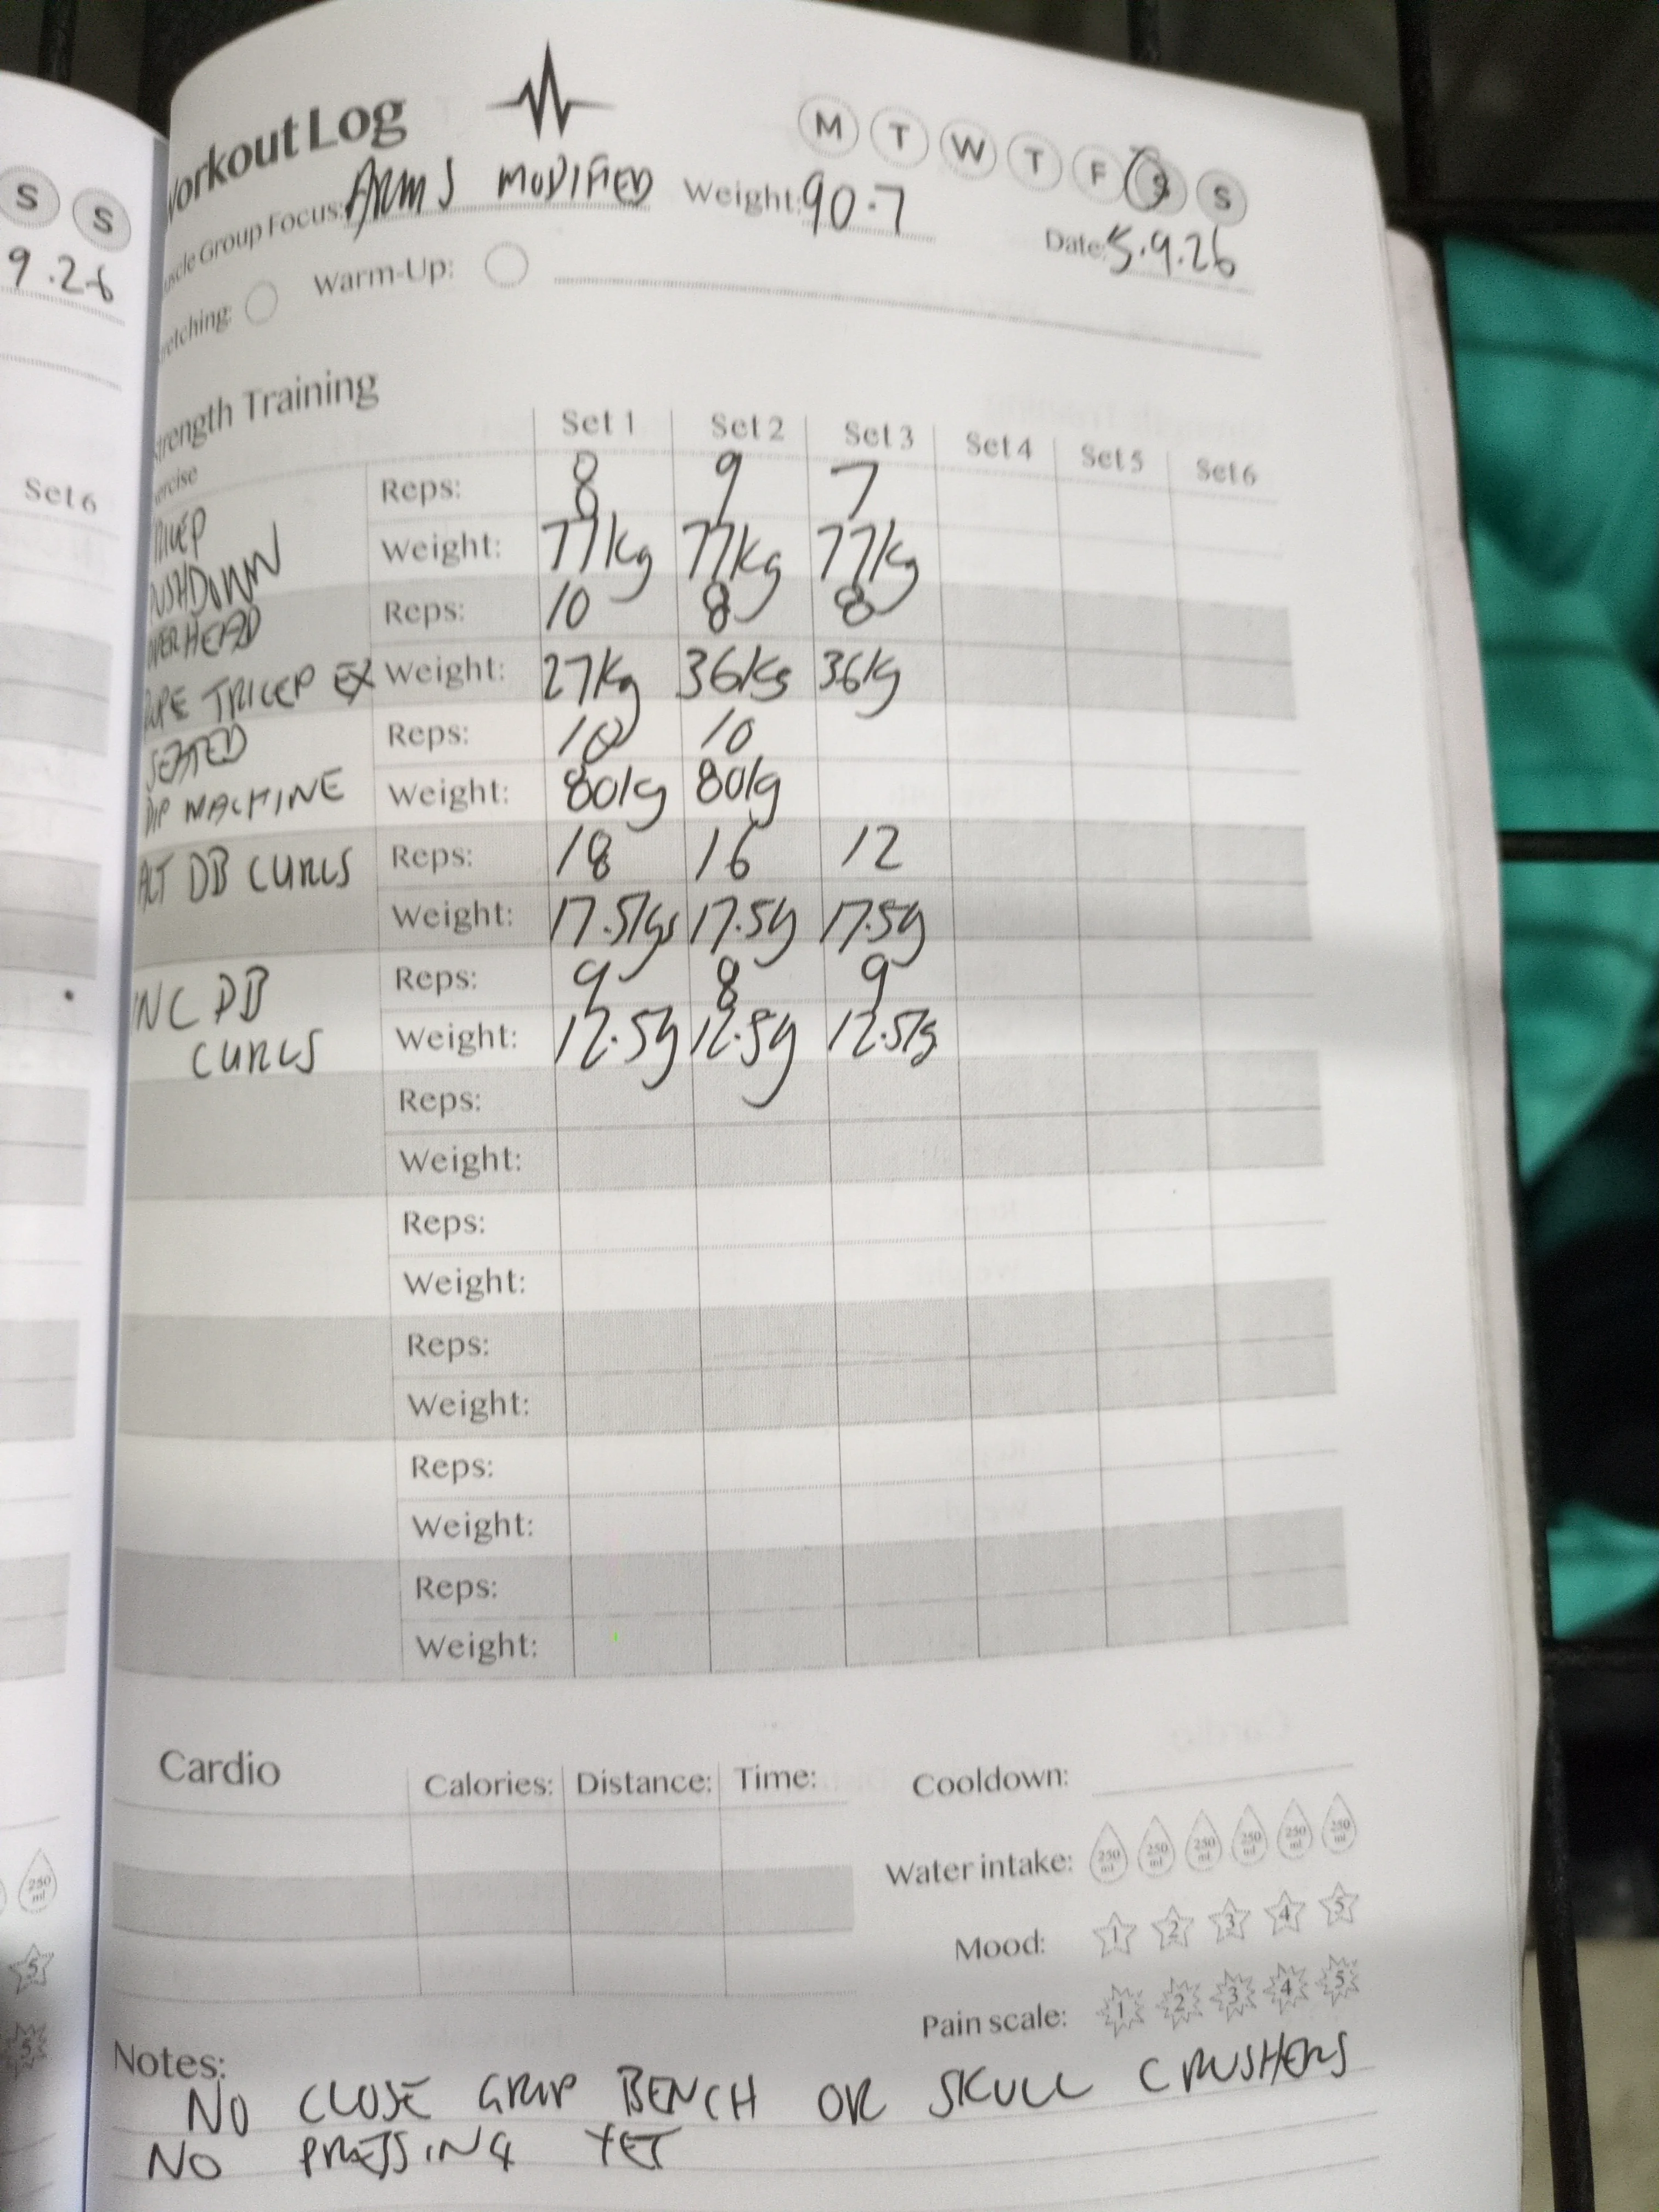 S S
9.26
Set 6
250 ml
5
5
Workout Log
M T W T F S S
Muscle Group Focus: ARMS MODIFIED Weight: 90.7
Date: 5.9.26
Stretching: Warm-Up:
Strength Training
Exercise Set 1 Set 2 Set 3 Set 4 Set 5 Set 6
TRICEP PUSHDOWN
Reps: 8 9 7
Weight: 77kg 77kg 77kg
OVERHEAD ROPE TRICEP EX
Reps: 10 8 8
Weight: 27kg 36kg 36kg
SEATED DIP MACHINE
Reps: 10 10
Weight: 80kg 80kg
ALT DB CURLS
Reps: 18 16 12
Weight: 17.5kgs 17.5kg 17.5kg
INC DB CURLS
Reps: 9 8 9
Weight: 12.5kg 12.5kg 12.5kg
Reps:
Weight:
Reps:
Weight:
Reps:
Weight:
Reps:
Weight:
Reps:
Weight:
Cardio Calories: Distance: Time:
Cooldown:
Water intake: 250 ml 250 ml 250 ml 250 ml 250 ml 250 ml
Mood: 1 2 3 4 5
Pain scale: 1 2 3 4 5
Notes:
NO CLOSE GRIP BENCH OR SKULL CRUSHERS
NO PRESSING YET